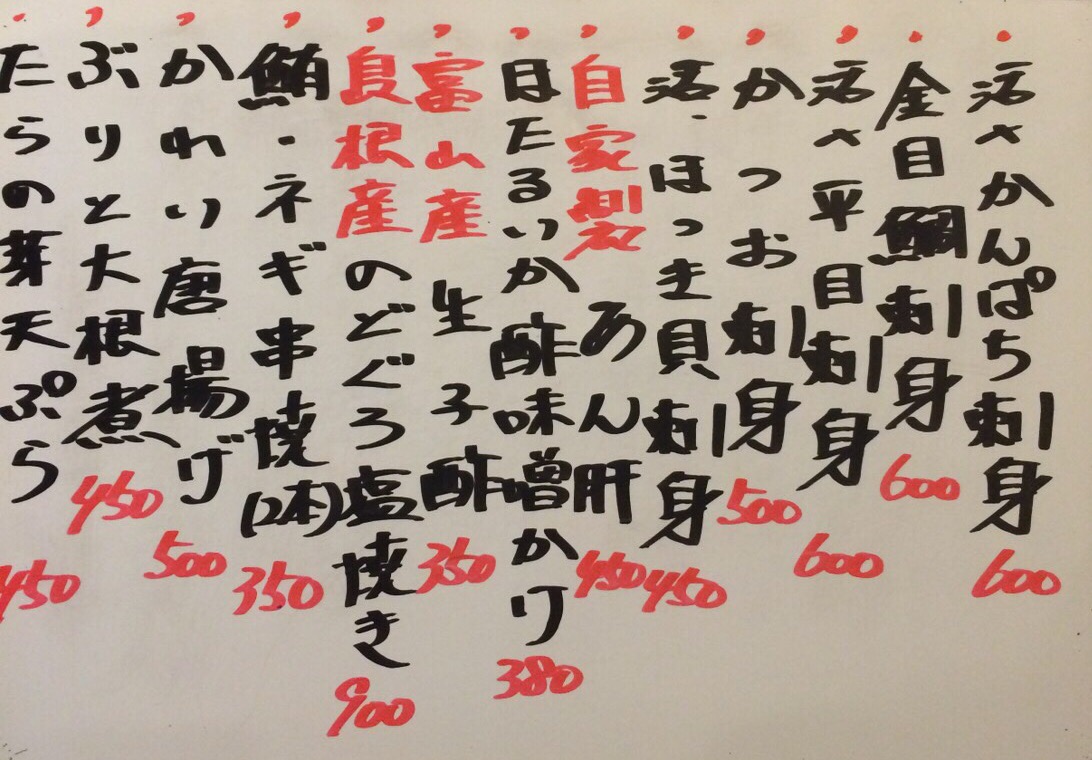 活〆かんぱち刺身 600
金目鯛刺身 600
活〆平目刺身 600
かつお刺身 500
活・ほっき貝刺身 450
自家製 あん肝 450
ほたるいか酢味噌かけ 380
富山産 生子酢 350
島根産のどぐろ塩焼き 900
鮪・ネギ串焼(2本) 350
かれい唐揚げ 500
ぶりと大根煮 450
たらの芽天ぷら 450